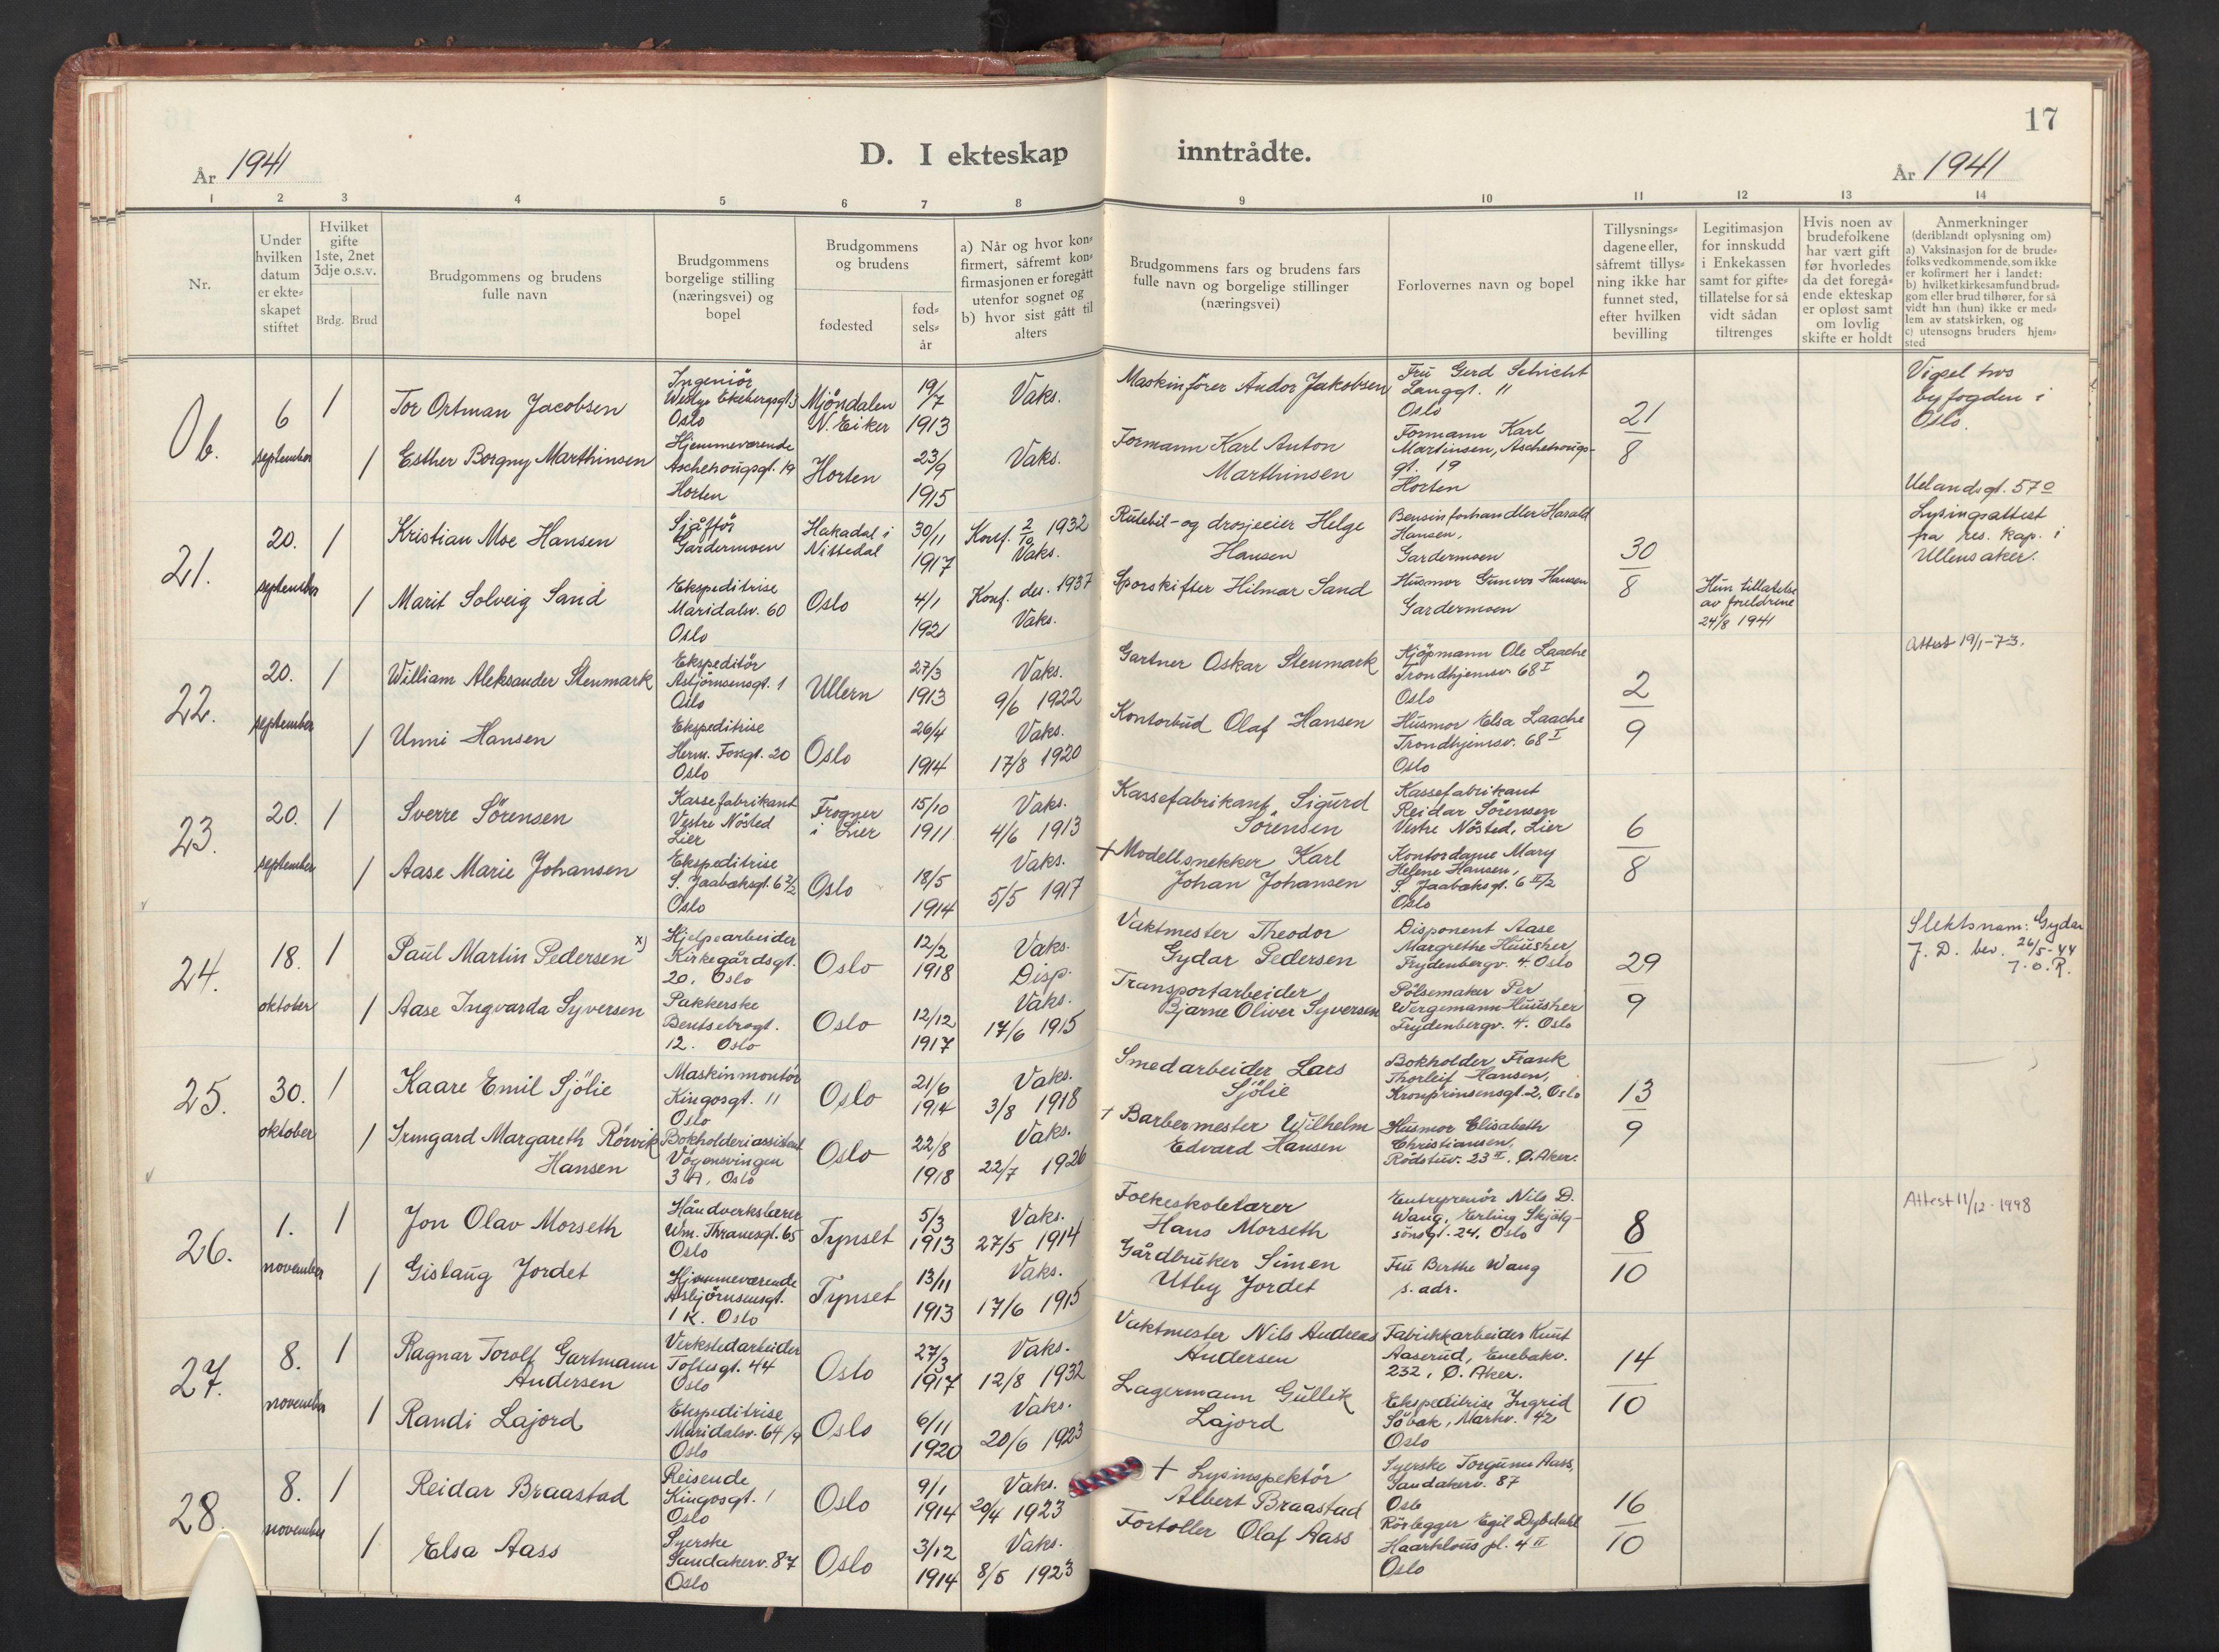 17
D. I ekteskap inntrådte.
År 1941
År 1941
1 2 3 4 5 6 7 8 9 10 11 12 13 14
Nr.
Under hvilken datum er ekte-skapet stiftet
Hvilket gifte 1ste, 2net 3dje o.s.v.
Brdg. Brud
Brudgommens og brudens fulle navn
Brudgommens borgelige stilling (næringsvei) og bopel
Brudgommens og brudens
fødested
fød-sels-år
a) Når og hvor kon-firmert, såfremt kon-firmasjonen er foregått utenfor sognet og b) hvor sist gått til alters
Brudgommens fars og brudens fars fulle navn og borgelige stillinger (næringsvei)
Forlovernes navn og bopel
Tillysnings-dagene eller, såfremt tillys-ning ikke har funnet sted, efter hvilken bevilling
Legitimasjon for innskudd i Enkekassen samt for gifte-tillatelse for så vidt sådan tiltrenges
Hvis noen av brudefolkene har vært gift før hvorledes da det foregå-ende ekteskap er opløst samt om lovlig skifte er holdt
Anmerkninger (deriblandt oplysning om) a) Vaksinasjon for de brude-folks vedkommende, som ikke er kofirmert her i landet: b) hvilket kirkesamfund brud-gom eller brud tilhører, for så vidt han (hun) ikke er med-lem av statskirken, og c) utensogns bruders hjem-sted
Ob.
6 september
1
Tor Ortman Jacobsen
Ingeniör
Oslo
Mjöndalen
N. Eiker
19/7 1913
Vaks.
Maskinfører Andor Jakobsen
Fru Gerd Schicht
Langgt. 11
Oslo
21/8
Vigsel hos
byfogden i
Oslo.
1
Esther Borgny Marthinsen
Hjemmeværende
Aschehougsgt. 19
Horten
Horten
23/9 1915
Vaks.
Formann Karl Anton
Marthinsen
Formann Karl
Martinsen, Aschehougs-
gt. 19
Horten
21.
20. september
1
Kristian Moe Hansen
Sjåfför
Gardermoen
Hakadal i
Nittedal
30/11 1917
Konf. 2/10 1932
Vaks.
Rutebil- og drosjeeier Helge
Hansen
Bensinforhandler Harald
Hansen,
Gardermoen
30/8
Uelandsgt. 57
Lysingsattest
fra res. kap. i
Ullensaker.
1
Marit Solveig Sand
Ekspeditrise
Maridalsv. 60
Oslo
Oslo
4/1 1921
Konf. des. 1937
Vaks.
Sporskifter Hilmar Sand
Husmor Gunvor Hansen
Gardermoen
Hun tillatelse
av foreldrene
24/8 1941
22.
20. september
1
William Aleksander Stenmark
Ekspeditör
Asbjörnsensgt. 1
Oslo
Ullern
27/3 1913
Vaks.
9/6 1922
Gartner Oskar Stenmark
Kjöpmann Ole Laache
Trondhjemsv. 68 I
Oslo
2/9
Attest 19/1-73.
1
Unni Hansen
Ekspeditrise
Herm. Fossgt. 20
Oslo
Oslo
26/4 1914
Vaks.
17/8 1920
Kontorbud Olaf Hansen
Husmor Elsa Laache
Trondhjemsv. 68 I
Oslo
23.
20. september
1
Sverre Sörensen
Kassefabrikant
Vestre Nösted
Lier
Frogner
i Lier
15/10 1911
Vaks.
4/6 1913
Kassefabrikant Sigurd
Sörensen
Kassefabrikant
Reidar Sörensen
Vestre Nösted, Lier
6/8
1
Aase Marie Johansen
Ekspeditrise
S. Jaabæksgt. 6
Oslo
Oslo
18/5 1914
Vaks.
5/5 1917
+ Modellsnekker Karl
Johan Johansen
Kontordame Mary
Helene Hansen,
S. Jaabæksgt. 6 II/2
Oslo
24.
18. oktober
1
Paul Martin Pedersen x)
Hjelpearbeider
Kirkegårdsgt.
20. Oslo
Oslo
12/2 1918
Vaks.
Disp.
Vaktmester Theodor
Gydar Pedersen
Disponent Aase
Margrethe Huusher
Frydenbergv. 4. Oslo
29/9
Slektsnam: Gydar
J. D. bev. 26/5-44
J. O. R.
1
Aase Ingvarda Syversen
Pakkerske
Bentsebrogt.
12. Oslo
Oslo
12/12 1917
Vaks.
17/6 1915
Transportarbeider
Bjarne Oliver Syversen
Pölsemaker Per
Wergemann Huusher
Frydenbergv. 4. Oslo
25.
30. oktober
1
Kaare Emil Sjölie
Maskinmontör
Kingosgt. 11
Oslo
Oslo
21/6 1914
Vaks.
3/8 1918
Smedarbeider Lars
Sjölie
Bokholder Frank
Thorleif Hansen,
Kronprinsensgt. 2, Oslo
13/9
1
Irmgard Margareth Rörvik
Hansen
Bokholderiassistent
Vögenevingen
3 A, Oslo
Oslo
22/8 1918
Vaks.
22/7 1926
+ Barbermester Wilhelm
Edvard Hansen
Husmor Elisabeth
Christiansen,
Rödstuv. 23 II, Ø. Aker.
26.
1. november
1
Jon Olav Morseth
Håndverkslærer
Wm. Thranesgt. 65
Oslo
Tynset
5/3 1913
Vaks.
27/5 1914
Folkeskolelærer
Hans Morseth
Entreprenör Nils D.
Wang, Erling Skjalg-
sönsgt. 24, Oslo
8/10
Attest 11/12-1998
1
Gislaug Jordet
Hjemmeværende
Asbjörnsensgt.
1 K. Oslo
Tynset
13/11 1913
Vaks.
17/6 1915
Gårdbruker Simen
Utby Jordet
Fru Berthe Wang
s. adr.
27.
8. november
1
Ragnar Torolf Gartmann
Andersen
Verkstedarbeider
Toftesgt. 44
Oslo
Oslo
27/3 1917
Vaks.
12/8 1932
Vaktmester Nils Andreas
Andersen
Fabrikkarbeider Knut
Aaserud, Enebakv.
232, Ø. Aker.
14/10
1
Randi Lajord
Ekspeditrise
Maridalsv. 64/9
Oslo
Oslo
6/11 1920
Vaks.
20/6 1923
Lagermann Gullik
Lajord
Ekspeditrise Ingrid
Söbak, Markv. 42
Oslo
28.
8. november
1
Reidar Braastad
Reisende
Kingosgt. 1
Oslo
Oslo
9/1 1914
Vaks.
20/4 1923
+ Lysinspektör
Albert Braastad
Syerske Torgunn Aass,
Sandakerv. 87
Oslo
16/10
1
Elsa Aass
Syerske
Sandakerv. 87
Oslo
Oslo
3/12 1914
Vaks.
8/5 1923
Fortoller Olaf Aass
Rörlegger Egil Dybdahl
Haarklous pl. 4 II
Oslo